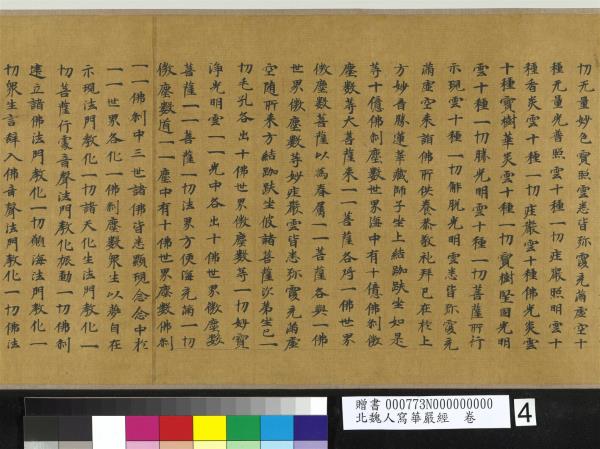 切无量妙色寶照雲悉皆弥覆充滿虛空十
種无量光普照雲十種一切庄嚴照明雲十
種香炎雲十種一切庄嚴雲十種佛光炎雲
十種寶樹華炎雲十種一切寶樹堅固光明
雲十種一切勝光明雲十種一切菩薩所行
示現雲十種一切解脫光明雲悉皆弥覆充
滿虛空來詣佛所供養恭敬礼拜已在於上
方妙音勝蓮華藏師子坐上結跏趺坐如是
等十億佛剎塵數世界海中有十億佛剎微
塵數等大菩薩来一一菩薩各將一佛世界
微塵數菩薩以為眷屬一一菩薩各興一佛
世界微塵數等妙庄嚴雲皆悉弥覆充滿虛
空随所来方結跏趺坐彼諸菩薩次第坐已一
切毛孔各出十佛世界微塵數等一切妙寶
淨光明雲一一光中各出十佛世界微塵數
菩薩一一菩薩一切法界方便海充滿一切
微塵數道一一塵中有十佛世界塵數佛剎
一一佛剎中三世諸佛皆悉顯現念念中於
一一世界各化一佛剎塵數衆生以夢自在
示現法門教化一切諸天化生法門教化一
切菩薩行處音聲法門教化振動一切佛剎
建立諸佛法門教化一切願海法門教化一
切衆生言辭入佛音聲法門教化一切佛法
贈書 000773N000000000
北魏人寫華嚴經 卷
4